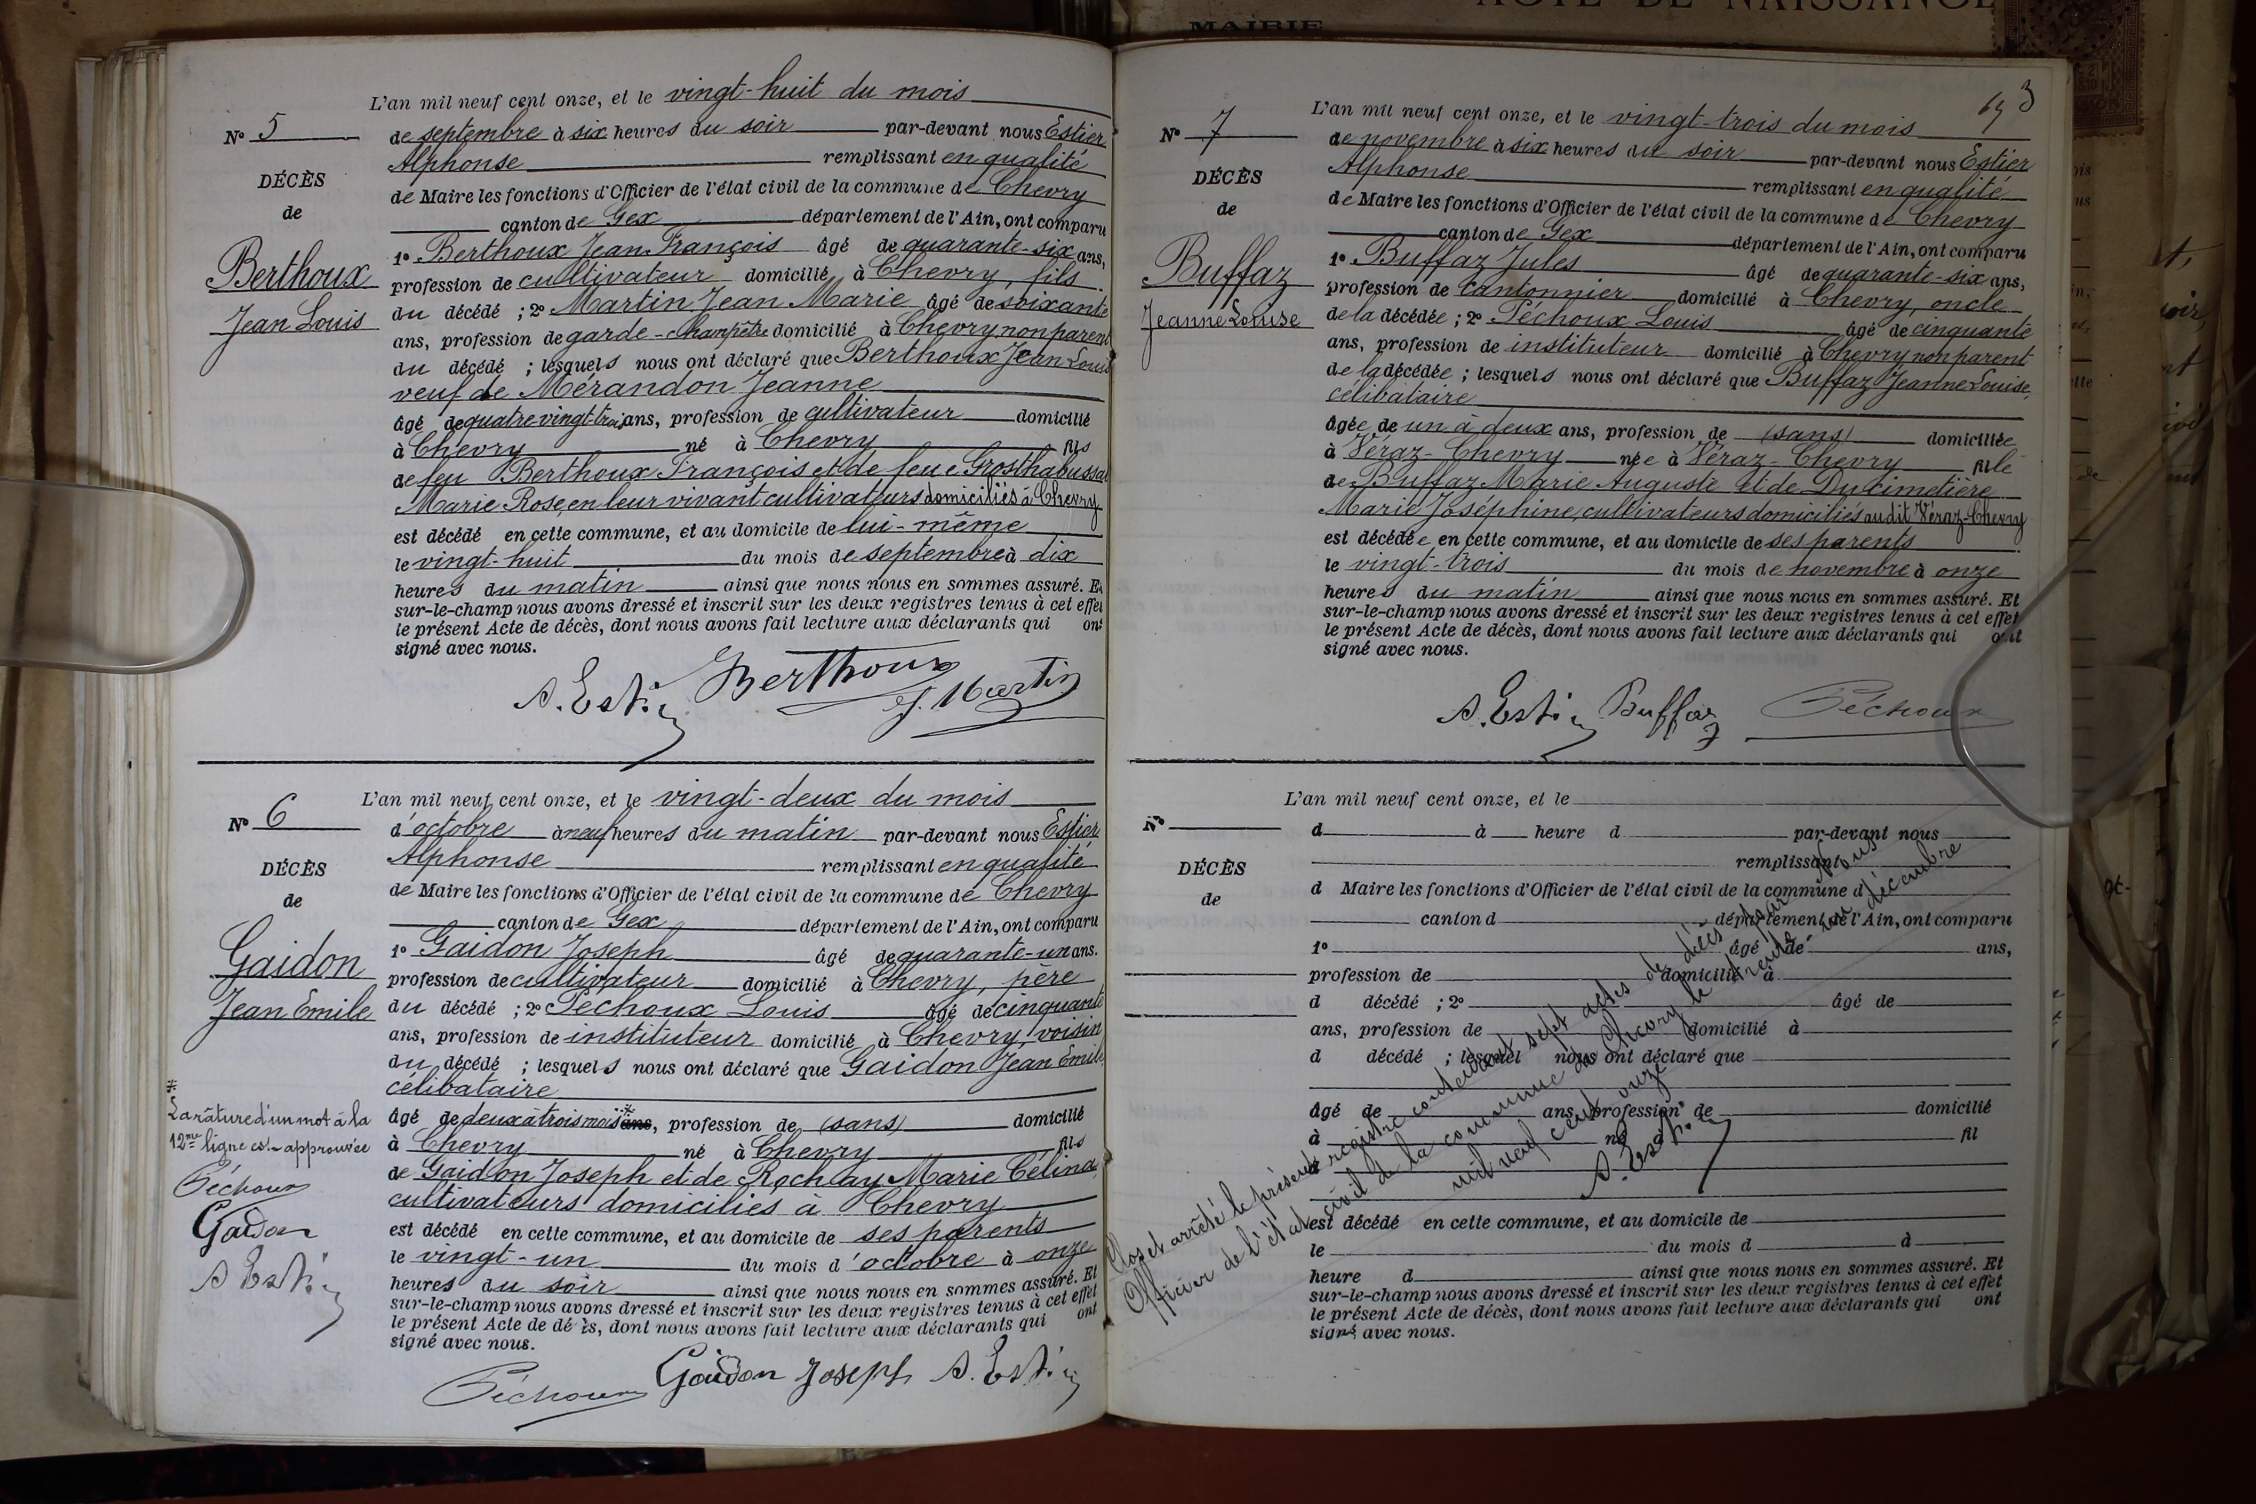 MAIRIE
ACTE DE NAISSANCE
L'an mil neuf cent onze, et le vingt-huit du mois
N° 5
de septembre à six heures du soir par-devant nous Estier
Alphonse remplissant en qualité
DÉCÈS
de Maire les fonctions d'Officier de l'état civil de la commune de Chevry
de
canton de Gex département de l'Ain, ont comparu
1° Berthoux Jean François âgé de quarante-six ans,
Berthoux
profession de cultivateur domicilié à Chevry, fils
Jean Louis
du décédé ; 2° Martin Jean Marie âgé de soixante
ans, profession de garde-champêtre domicilié à Chevry, non parent
du décédé ; lesquels nous ont déclaré que Berthoux Jean Louis
veuf de Mérandon Jeanne
âgé de quatre vingt-trois ans, profession de cultivateur domicilié
à Chevry né à Chevry fils
de feu Berthoux François et de feue Grosthabussat
Marie Rose, en leur vivant cultivateurs domiciliés à Chevry
est décédé en cette commune, et au domicile de lui-même
le vingt-huit du mois de septembre à dix
heures du matin ainsi que nous nous en sommes assuré. Et
sur-le-champ nous avons dressé et inscrit sur les deux registres tenus à cet effet
le présent Acte de décès, dont nous avons fait lecture aux déclarants qui ont
signé avec nous.
A. Estier Berthoux J. Martin
L'an mil neuf cent onze, et le vingt-deux du mois
N° 6
d'octobre à neuf heures du matin par-devant nous Estier
Alphonse remplissant en qualité
DÉCÈS
de Maire les fonctions d'Officier de l'état civil de la commune de Chevry
de
canton de Gex département de l'Ain, ont comparu
1° Gaidon Joseph âgé de quarante-un ans.
Gaidon
profession de cultivateur domicilié à Chevry, père
Jean Emile
du décédé ; 2° Péchoux Louis âgé de cinquante
ans, profession de instituteur domicilié à Chevry, voisin
du décédé ; lesquels nous ont déclaré que Gaidon Jean Emile
célibataire
âgé de deux à trois mois * ans, profession de (sans) domicilié
à Chevry né à Chevry fils
de Gaidon Joseph et de Rochay Marie Célina
cultivateurs domiciliés à Chevry
est décédé en cette commune, et au domicile de ses parents
le vingt-un du mois d'octobre à onze
heures du soir ainsi que nous nous en sommes assuré. Et
sur-le-champ nous avons dressé et inscrit sur les deux registres tenus à cet effet
le présent Acte de décès, dont nous avons fait lecture aux déclarants qui ont
signé avec nous.
Péchoux Gaidon Joseph A. Estier
*
La râture d'un mot à la
12me ligne est approuvée
Péchoux
Gaidon
A Estier
63
L'an mil neuf cent onze, et le vingt-trois du mois
N° 7
de novembre à six heures du soir par-devant nous Estier
Alphonse remplissant en qualité
DÉCÈS
de Maire les fonctions d'Officier de l'état civil de la commune de Chevry
de
canton de Gex département de l'Ain, ont comparu
1° Buffaz Jules âgé de quarante-six ans,
Buffaz
profession de cantonnier domicilié à Chevry, oncle
Jeanne Louise
de la décédée ; 2° Péchoux Louis âgé de cinquante
ans, profession de instituteur domicilié à Chevry non parent
de la décédée ; lesquels nous ont déclaré que Buffaz Jeanne Louise,
célibataire
âgée de un à deux ans, profession de (sans) domiciliée
à Véraz-Chevry née à Véraz-Chevry fille
de Buffaz Marie Auguste et de Ducimetière
Marie Joséphine, cultivateurs domiciliés audit Véraz-Chevry
est décédée en cette commune, et au domicile de ses parents
le vingt-trois du mois de novembre à onze
heures du matin ainsi que nous nous en sommes assuré. Et
sur-le-champ nous avons dressé et inscrit sur les deux registres tenus à cet effet
le présent Acte de décès, dont nous avons fait lecture aux déclarants qui ont
signé avec nous.
A. Estier Buffaz Péchoux
L'an mil neuf cent onze, et le
N°
d à heure d par-devant nous
remplissant
DÉCÈS
d Maire les fonctions d'Officier de l'état civil de la commune d
de
canton d département de l'Ain, ont comparu
1° âgé de ans,
profession de domicilié à
d décédé ; 2° âgé de
ans, profession de domicilié à
d décédé ; lesquel nous ont déclaré que
âgé de ans, profession de domicilié
à né à fil
d
est décédé en cette commune, et au domicile de
le du mois d à
heure d ainsi que nous nous en sommes assuré. Et
sur-le-champ nous avons dressé et inscrit sur les deux registres tenus à cet effet
le présent Acte de décès, dont nous avons fait lecture aux déclarants qui ont
signé avec nous.
Clos et arrêté le présent registre contenant sept actes de décès par Nous
Officier de l'état civil de la commune de Chevry le trente un décembre
mil neuf cent onze
A. Estier